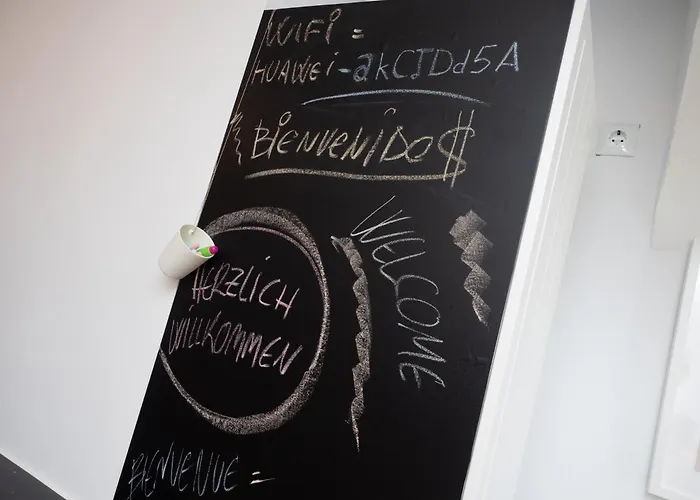 WIFI =
HUAWEI-akCJDd5A
BIENVENIDO$
WELCOME
HERZLICH
WILLKOMMEN
BIENVENUE =